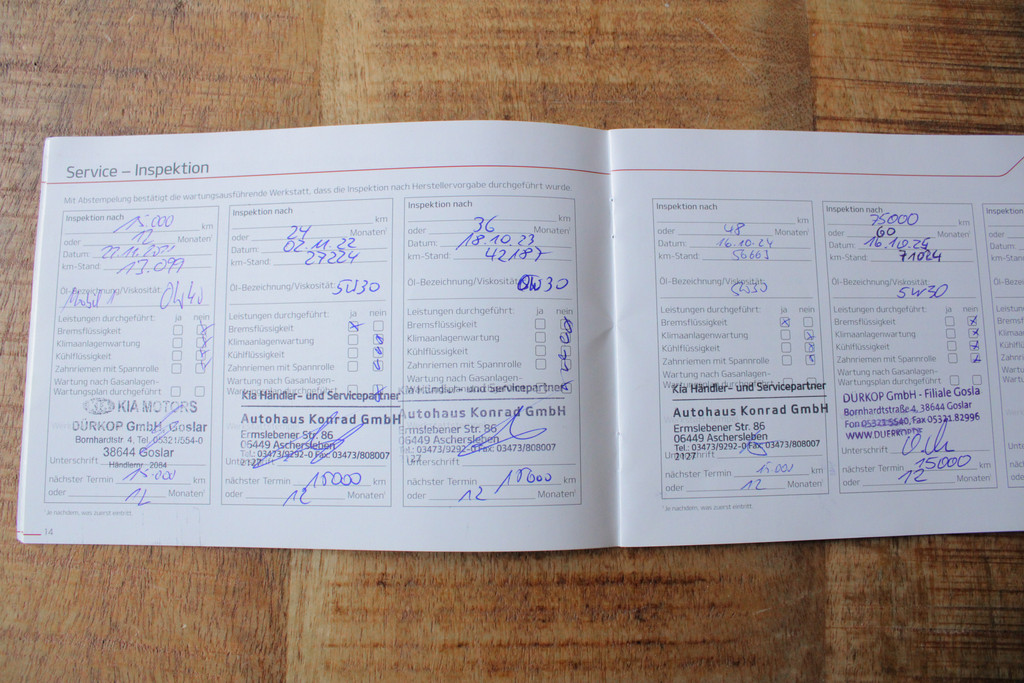 Service – Inspektion
Mit Abstempelung bestätigt die wartungsausführende Werkstatt, dass die Inspektion nach Herstellervorgabe durchgeführt wurde.
Inspektion nach 15.000 km
oder 12 Monaten¹
Datum:
km-Stand: 13.099
Öl-Bezeichnung/Viskosität:
Mobil 1 0W40
Leistungen durchgeführt: ja nein
Bremsflüssigkeit
Klimaanlagenwartung
Kühlflüssigkeit
Zahnriemen mit Spannrolle
Wartung nach Gasanlagen-
Wartungsplan durchgeführt
KIA MOTORS
DÜRKOP GmbH, Goslar
Bornhardtstr. 4, Tel. 05321/554-0
38644 Goslar
Unterschrift Händlernr. 2084
nächster Termin 15.000 km
oder 12 Monaten¹
¹Je nachdem, was zuerst eintritt.
14
Inspektion nach km
oder 24 Monaten¹
Datum: 02.11.22
km-Stand: 27224
Öl-Bezeichnung/Viskosität: 5W30
Leistungen durchgeführt: ja nein
Bremsflüssigkeit
Klimaanlagenwartung
Kühlflüssigkeit
Zahnriemen mit Spannrolle
Wartung nach Gasanlagen-
Wartungsplan durchgeführt
Kia Händler- und Servicepartner
Autohaus Konrad GmbH
Ermslebener Str. 86
06449 Aschersleben
Tel.: 03473/9292-0 Fax: 03473/808007
2127
Unterschrift
nächster Termin 15000 km
oder 12 Monaten¹
Inspektion nach km
oder 36 Monaten¹
Datum: 18.10.23
km-Stand: 42187
Öl-Bezeichnung/Viskosität: 0W30
Leistungen durchgeführt: ja nein
Bremsflüssigkeit
Klimaanlagenwartung
Kühlflüssigkeit
Zahnriemen mit Spannrolle
Wartung nach Gasanlagen-
Wartungsplan durchgeführt
Kia Händler- und Servicepartner
Autohaus Konrad GmbH
Ermslebener Str. 86
06449 Aschersleben
Tel.: 03473/9292-0 Fax: 03473/808007
2127
Unterschrift
nächster Termin 15000 km
oder 12 Monaten¹
Inspektion nach km
oder 48 Monaten¹
Datum: 16.10.24
km-Stand: 56661
Öl-Bezeichnung/Viskosität:
5W30
Leistungen durchgeführt: ja nein
Bremsflüssigkeit
Klimaanlagenwartung
Kühlflüssigkeit
Zahnriemen mit Spannrolle
Wartung nach Gasanlagen-
Wartungsplan durchgeführt
Kia Händler- und Servicepartner
Autohaus Konrad GmbH
Ermslebener Str. 86
06449 Aschersleben
Tel.: 03473/9292-0 Fax: 03473/808007
2127
Unterschrift
nächster Termin 15.000 km
oder 12 Monaten¹
¹Je nachdem, was zuerst eintritt.
Inspektion nach 75000 km
oder 60 Monaten¹
Datum: 16.10.25
km-Stand: 71024
Öl-Bezeichnung/Viskosität:
5W30
Leistungen durchgeführt: ja nein
Bremsflüssigkeit
Klimaanlagenwartung
Kühlflüssigkeit
Zahnriemen mit Spannrolle
Wartung nach Gasanlagen-
Wartungsplan durchgeführt
DÜRKOP GmbH - Filiale Gosla
Bornhardtstraße 4, 38644 Goslar
Fon 05321.5540, Fax 05321.82996
Unterschrift
nächster Termin 15000 km
oder 12 Monaten¹
Inspektion
oder
Datum:
km-Stand:
Öl-Bezeich
Leistungen
Bremsflüs
Klimaanla
Kühlflüss
Zahnriem
Wartung
Wartungs
Untersch
nächster
oder